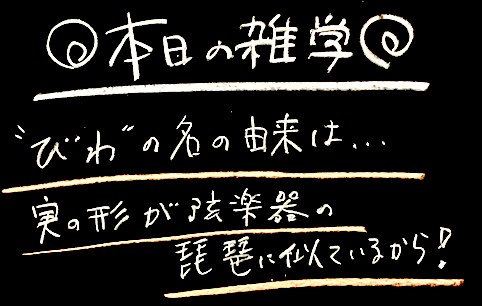 本日の雑学
"びわ"の名の由来は...
実の形が弦楽器の
琵琶に似ているから!